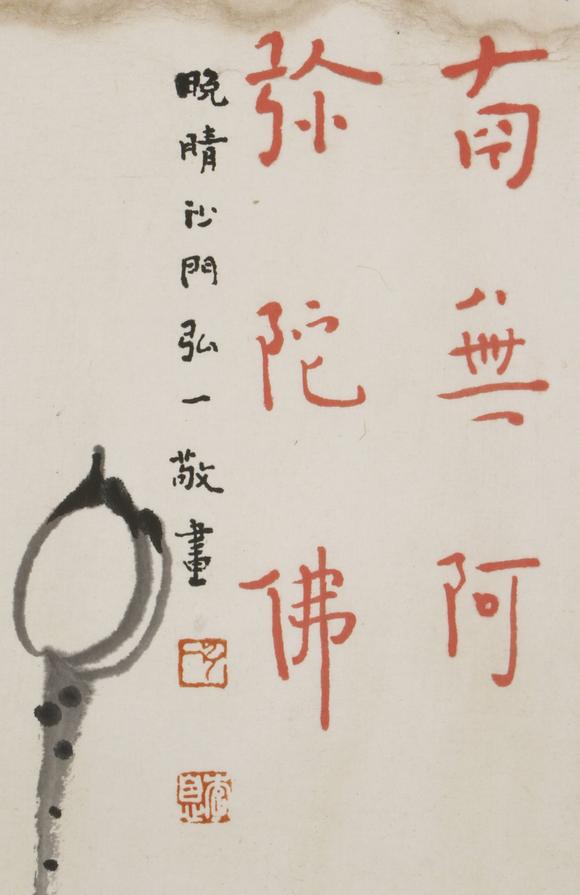 南無阿
弥陀佛
晚晴沙門弘一敬畫